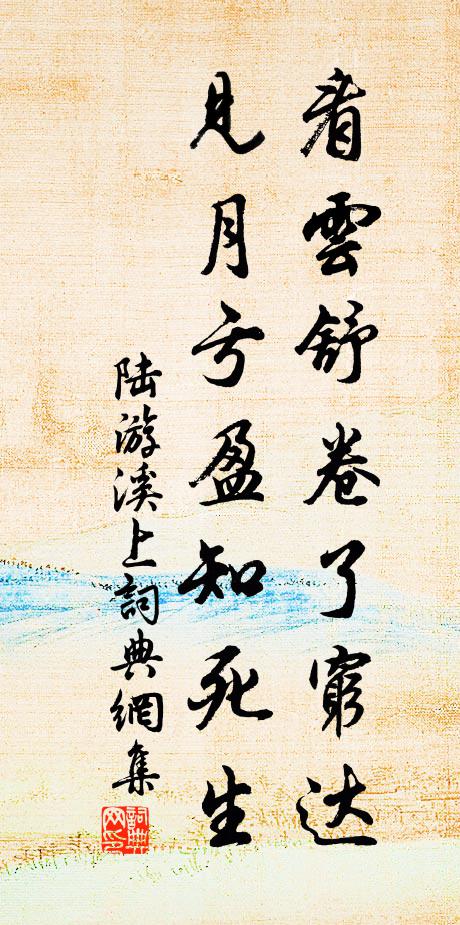 看雲舒卷了窮达
見月亏盈知死生
陆游溪上詞典網集
詞典网印